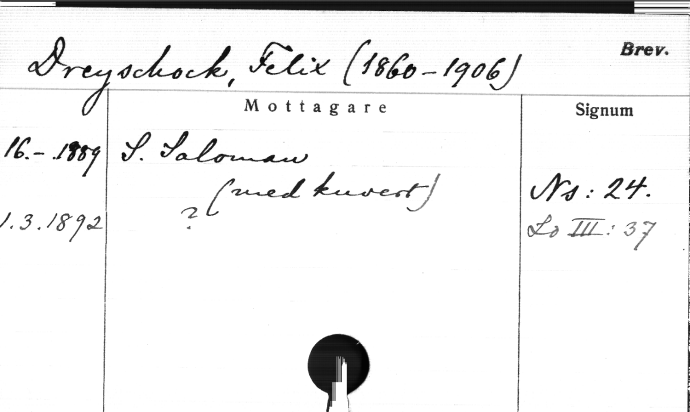 Brev.
Dreyschock, Felix (1860-1906)
Mottagare
Signum
16.-.1889 S. Saloman
(med kuvert) Ns: 24.
1.3.1892 ? Lo III: 37